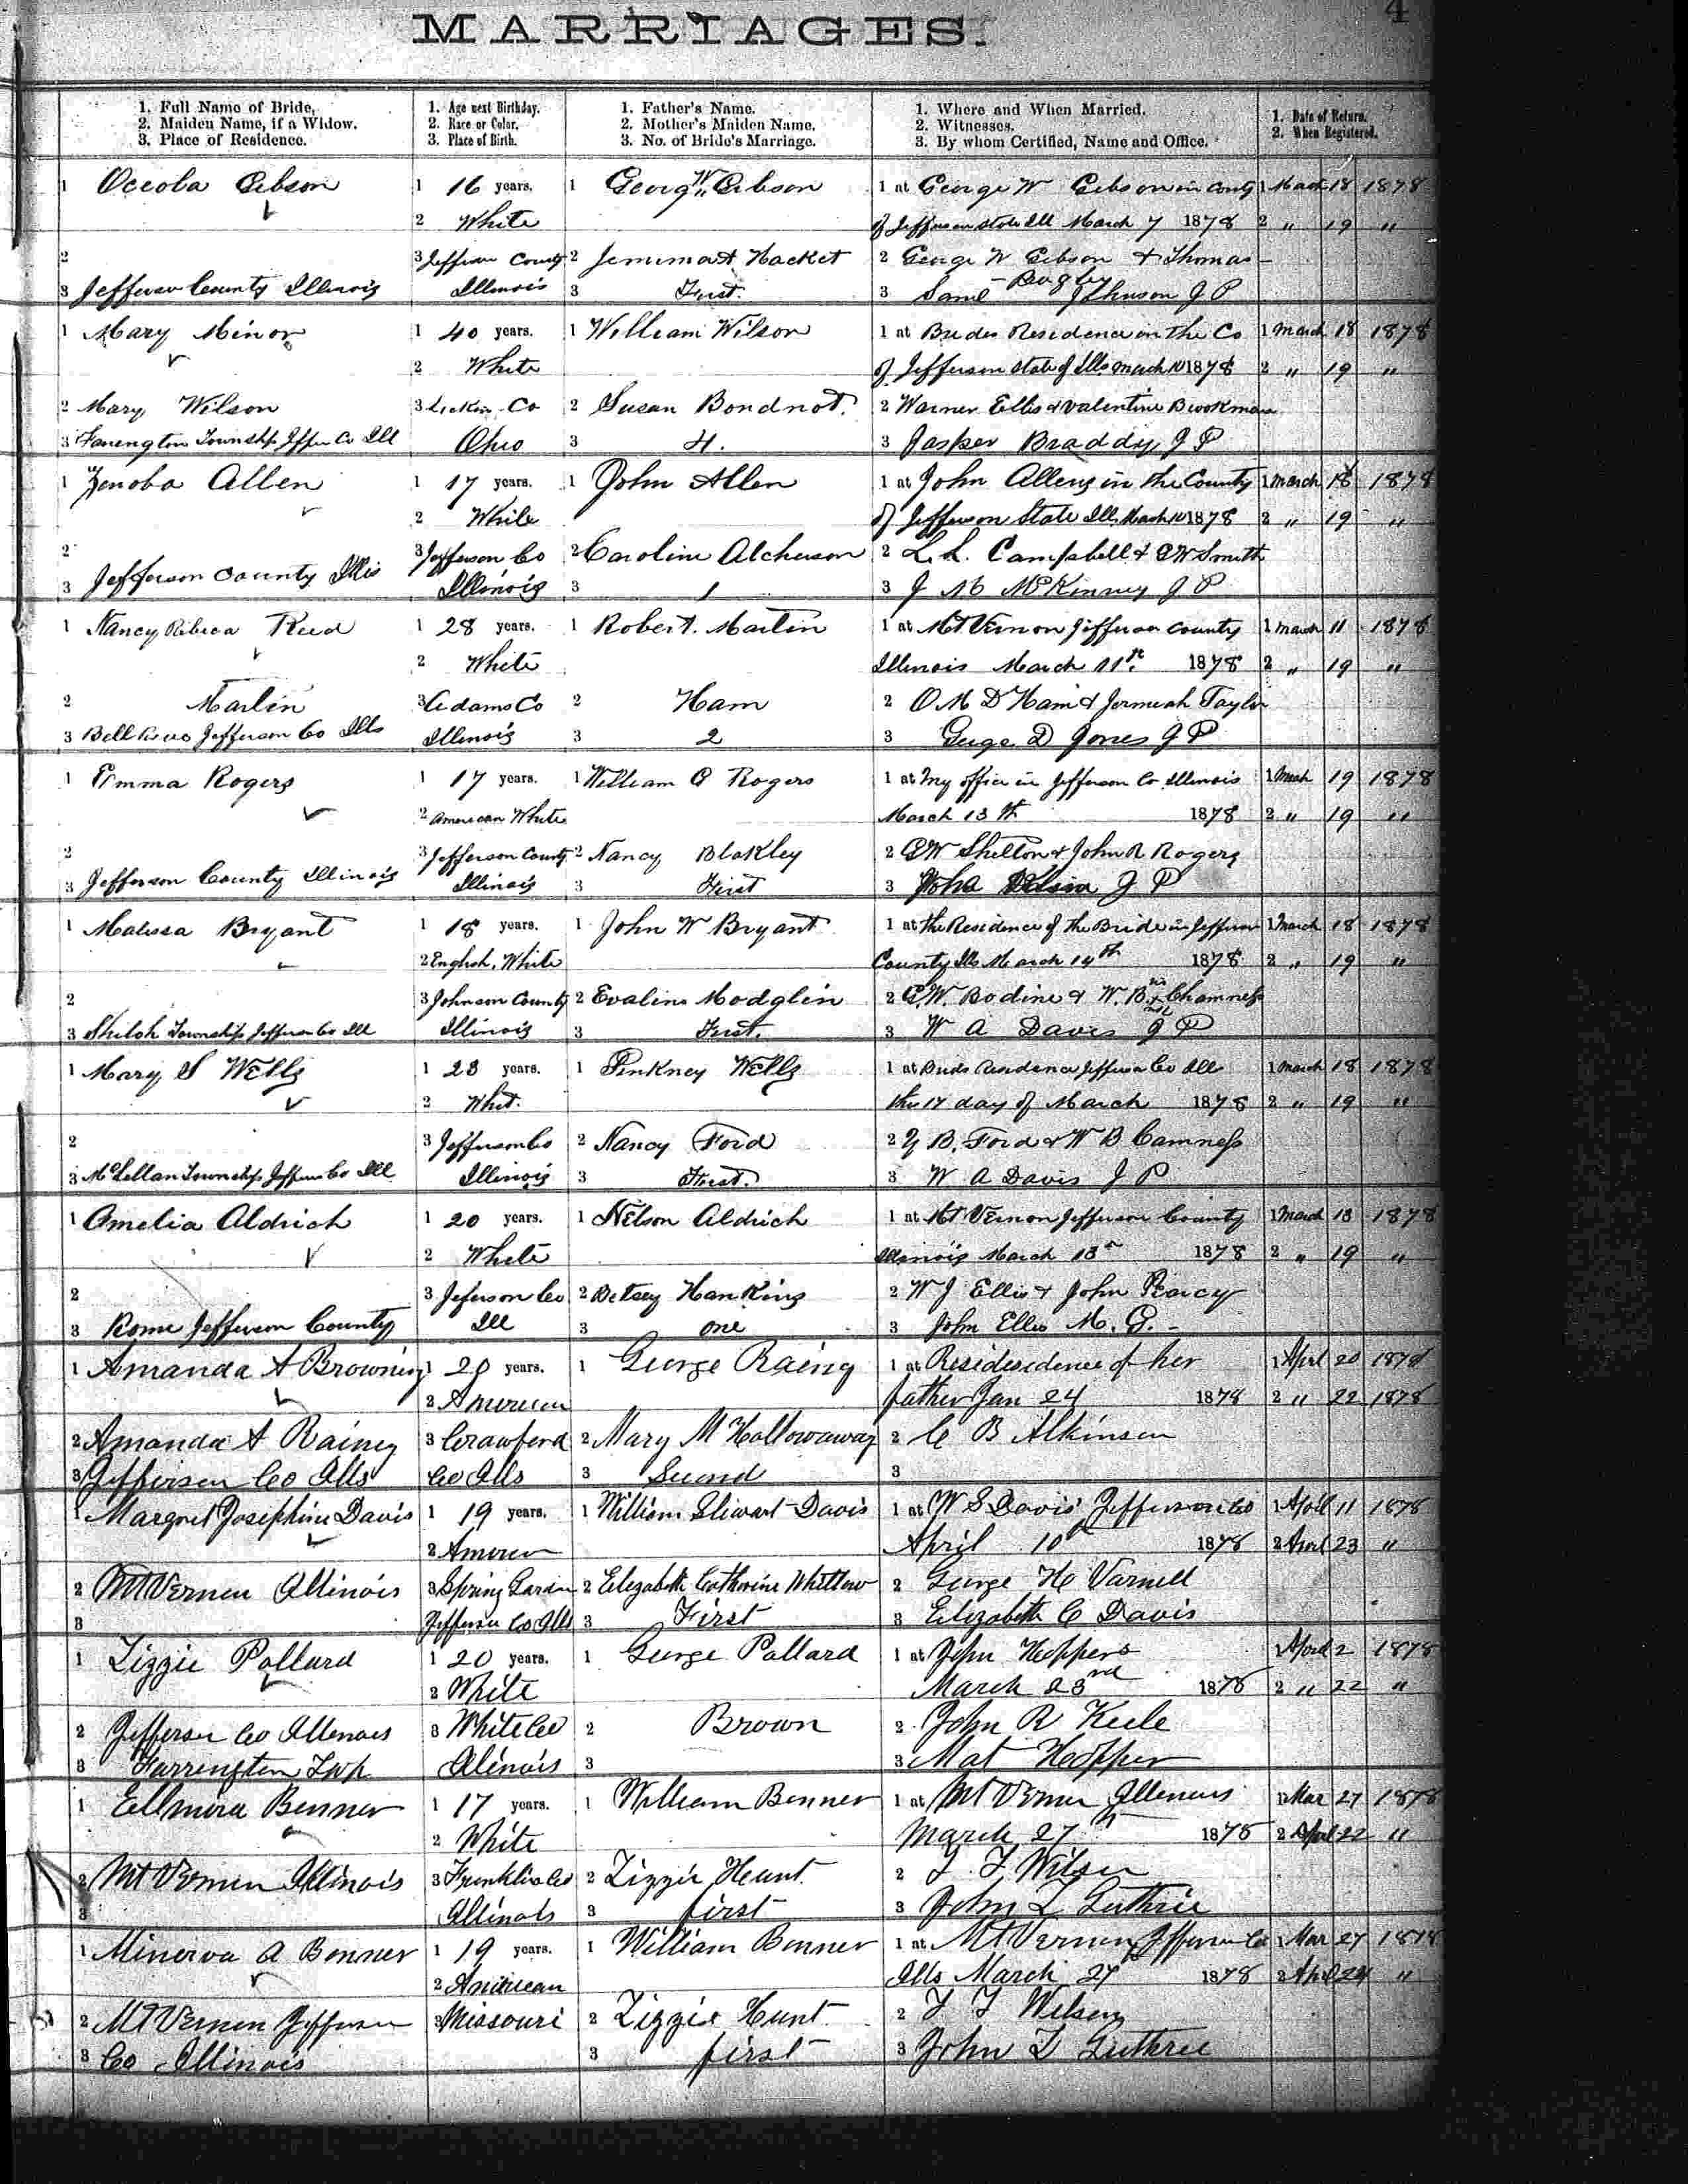 4
MARRIAGES.
1. Full Name of Bride, 1. Age next Birthday. 1. Father's Name. 1. Where and When Married. 1. Date of Return.
2. Maiden Name, if a Widow. 2. Race or Color. 2. Mother's Maiden Name. 2. Witnesses. 2. When Registered.
3. Place of Residence. 3. Place of Birth. 3. No. of Bride's Marriage. 3. By whom Certified, Name and Office.
1 Oceola Gibson 1 16 years. 1 Georg W. Gibson 1 at George W Gibson in County 1 March 18 1878
2 White of Jefferson State Ill March 7 1878 2 " 19 "
2 3 Jefferson County 2 Jemima A Hacket 2 George W Gibson & Thomas
3 Jefferson County Illinois Illinois 3 First. 3 Saml Johnson J P
1 Mary Minor 1 40 years. 1 William Wilson 1 at Brides Residence in the Co 1 March 18 1878
2 White of Jefferson State of Ills March 10 1878 2 " 19 "
2 Mary Wilson 3 Lickin Co 2 Susan Bondnot. 2 Warner Ellis & Valentine Brookman
3 Farrington Township Jeffer Co Ill Ohio 3 4. 3 Jasper Braddy J P
1 Zenoba Allen 1 17 years. 1 John Allen 1 at John Allens in the County 1 March 18 1878
2 White of Jefferson State Ill March 10 1878 2 " 19 "
2 3 Jefferson Co 2 Caroline Alcherson 2 L. L. Campbell & G W Smith
3 Jefferson County Ills Illinois 3 1 3 J M McKinney J P
1 Nancy Rebeca Reed 1 28 years. 1 Robert. Martin 1 at Mt Vernon Jefferson County 1 March 11 1878
2 White Illinois March 11th. 1878 2 " 19 "
2 Martin 3 Adams Co 2 Ham 2 O M D Ham & Jermiah Taylor
3 Bell Jefferson Co Ills Illinois 3 2 3 George D Jones J P
1 Emma Rogers 1 17 years. 1 William Rogers 1 at My office in Jefferson Co Illinois 1 March 19 1878
2 American White March 13th 1878 2 " 19 "
2 3 Jefferson County 2 Nancy Blakley 2 G W Shelton & John R Rogers
3 Jefferson County Illinois Illinois 3 First 3 J P
1 Malissa Bryant 1 18 years. 1 John W Bryant 1 at the Residence of the Bride in Jefferson 1 March 18 1878
2 English, White County Ills March 14th 1878 2 " 19 "
2 3 Johnson County 2 Evaline Modglin 2 G. W. Bodine & W. B. Chamness
3 Shiloh Township Jefferson Co Ill Illinois 3 First. 3 W A Davis J P
1 Mary S Wells 1 23 years. 1 Pinkney Wells 1 at Brids Residence Jefferson Co Ill 1 March 18 1878
2 Whit. this 17 day of March 1878 2 " 19 "
2 3 Jefferson Co 2 Nancy Ford 2 B. Ford & W B Camness
3 McLellan Township Jefferson Co Ill Illinois 3 First. 3 W A Davis J P
1 Amelia Aldrich 1 20 years. 1 Nelson Aldrich 1 at Mt Vernon Jefferson County 1 March 13 1878
2 White Illinois March 13th 1878 2 " 19 "
2 3 Jeferson Co 2 Betsey Hanking 2 W J Ellis & John Pearcy
3 Rome Jefferson County Ill 3 one 3 John Ellis M. G.
1 Amanda A Browning 1 20 years. 1 George Rainey 1 at Residesidence of her 1 April 20 1878
2 American father Jan 24 1878 2 " 22 1878
2 Amanda A Rainey 3 Crawford 2 Mary M Hollowaway 2 C B Atkinson
3 Jefferson Co Ills Co Ills 3 Second 3
1 Margret Josephine Davis 1 19 years. 1 William Stewart Davis 1 at W S Davis Jefferson Co 1 April 11 1878
2 American April 10th 1878 2 April 23 "
2 Mt Vernon Illinois 3 Spring Garden 2 Elizabeth Catherine Whitlow 2 George H Varnell
3 Jefferson Co Ills 3 First 3 Elizabeth C Davis
1 Lizzie Pollard 1 20 years. 1 George Pollard 1 at John Hoppers 1 April 2 1878
2 White March 23rd 1878 2 " 22 "
2 Jefferson Co Illinois 3 White Co 2 Brown 2 John R Keele
3 Farrington Twp Illinois 3 3 Mat Hopper
1 Ellmira Benner 1 17 years. 1 William Benner 1 at Mt Vernon Illinois 1 Mar 27 1878
2 White March 27th 1878 2 April 22 "
2 Mt Vernon Illinois 3 Franklin Co 2 Lizzie Hunt. 2 Wilson
3 Illinois 3 first 3 John L Guthrie
1 Minerva A Benner 1 19 years. 1 William Benner 1 at Mt Vernon Jefferson Co 1 Mar 27 1878
2 American Ills March 27 1878 2 April 24 "
2 Mt Vernon Jefferson 3 Missouri 2 Lizzie Hunt. 2 Wilson
3 Co Illinois 3 first 3 John L Guthrie